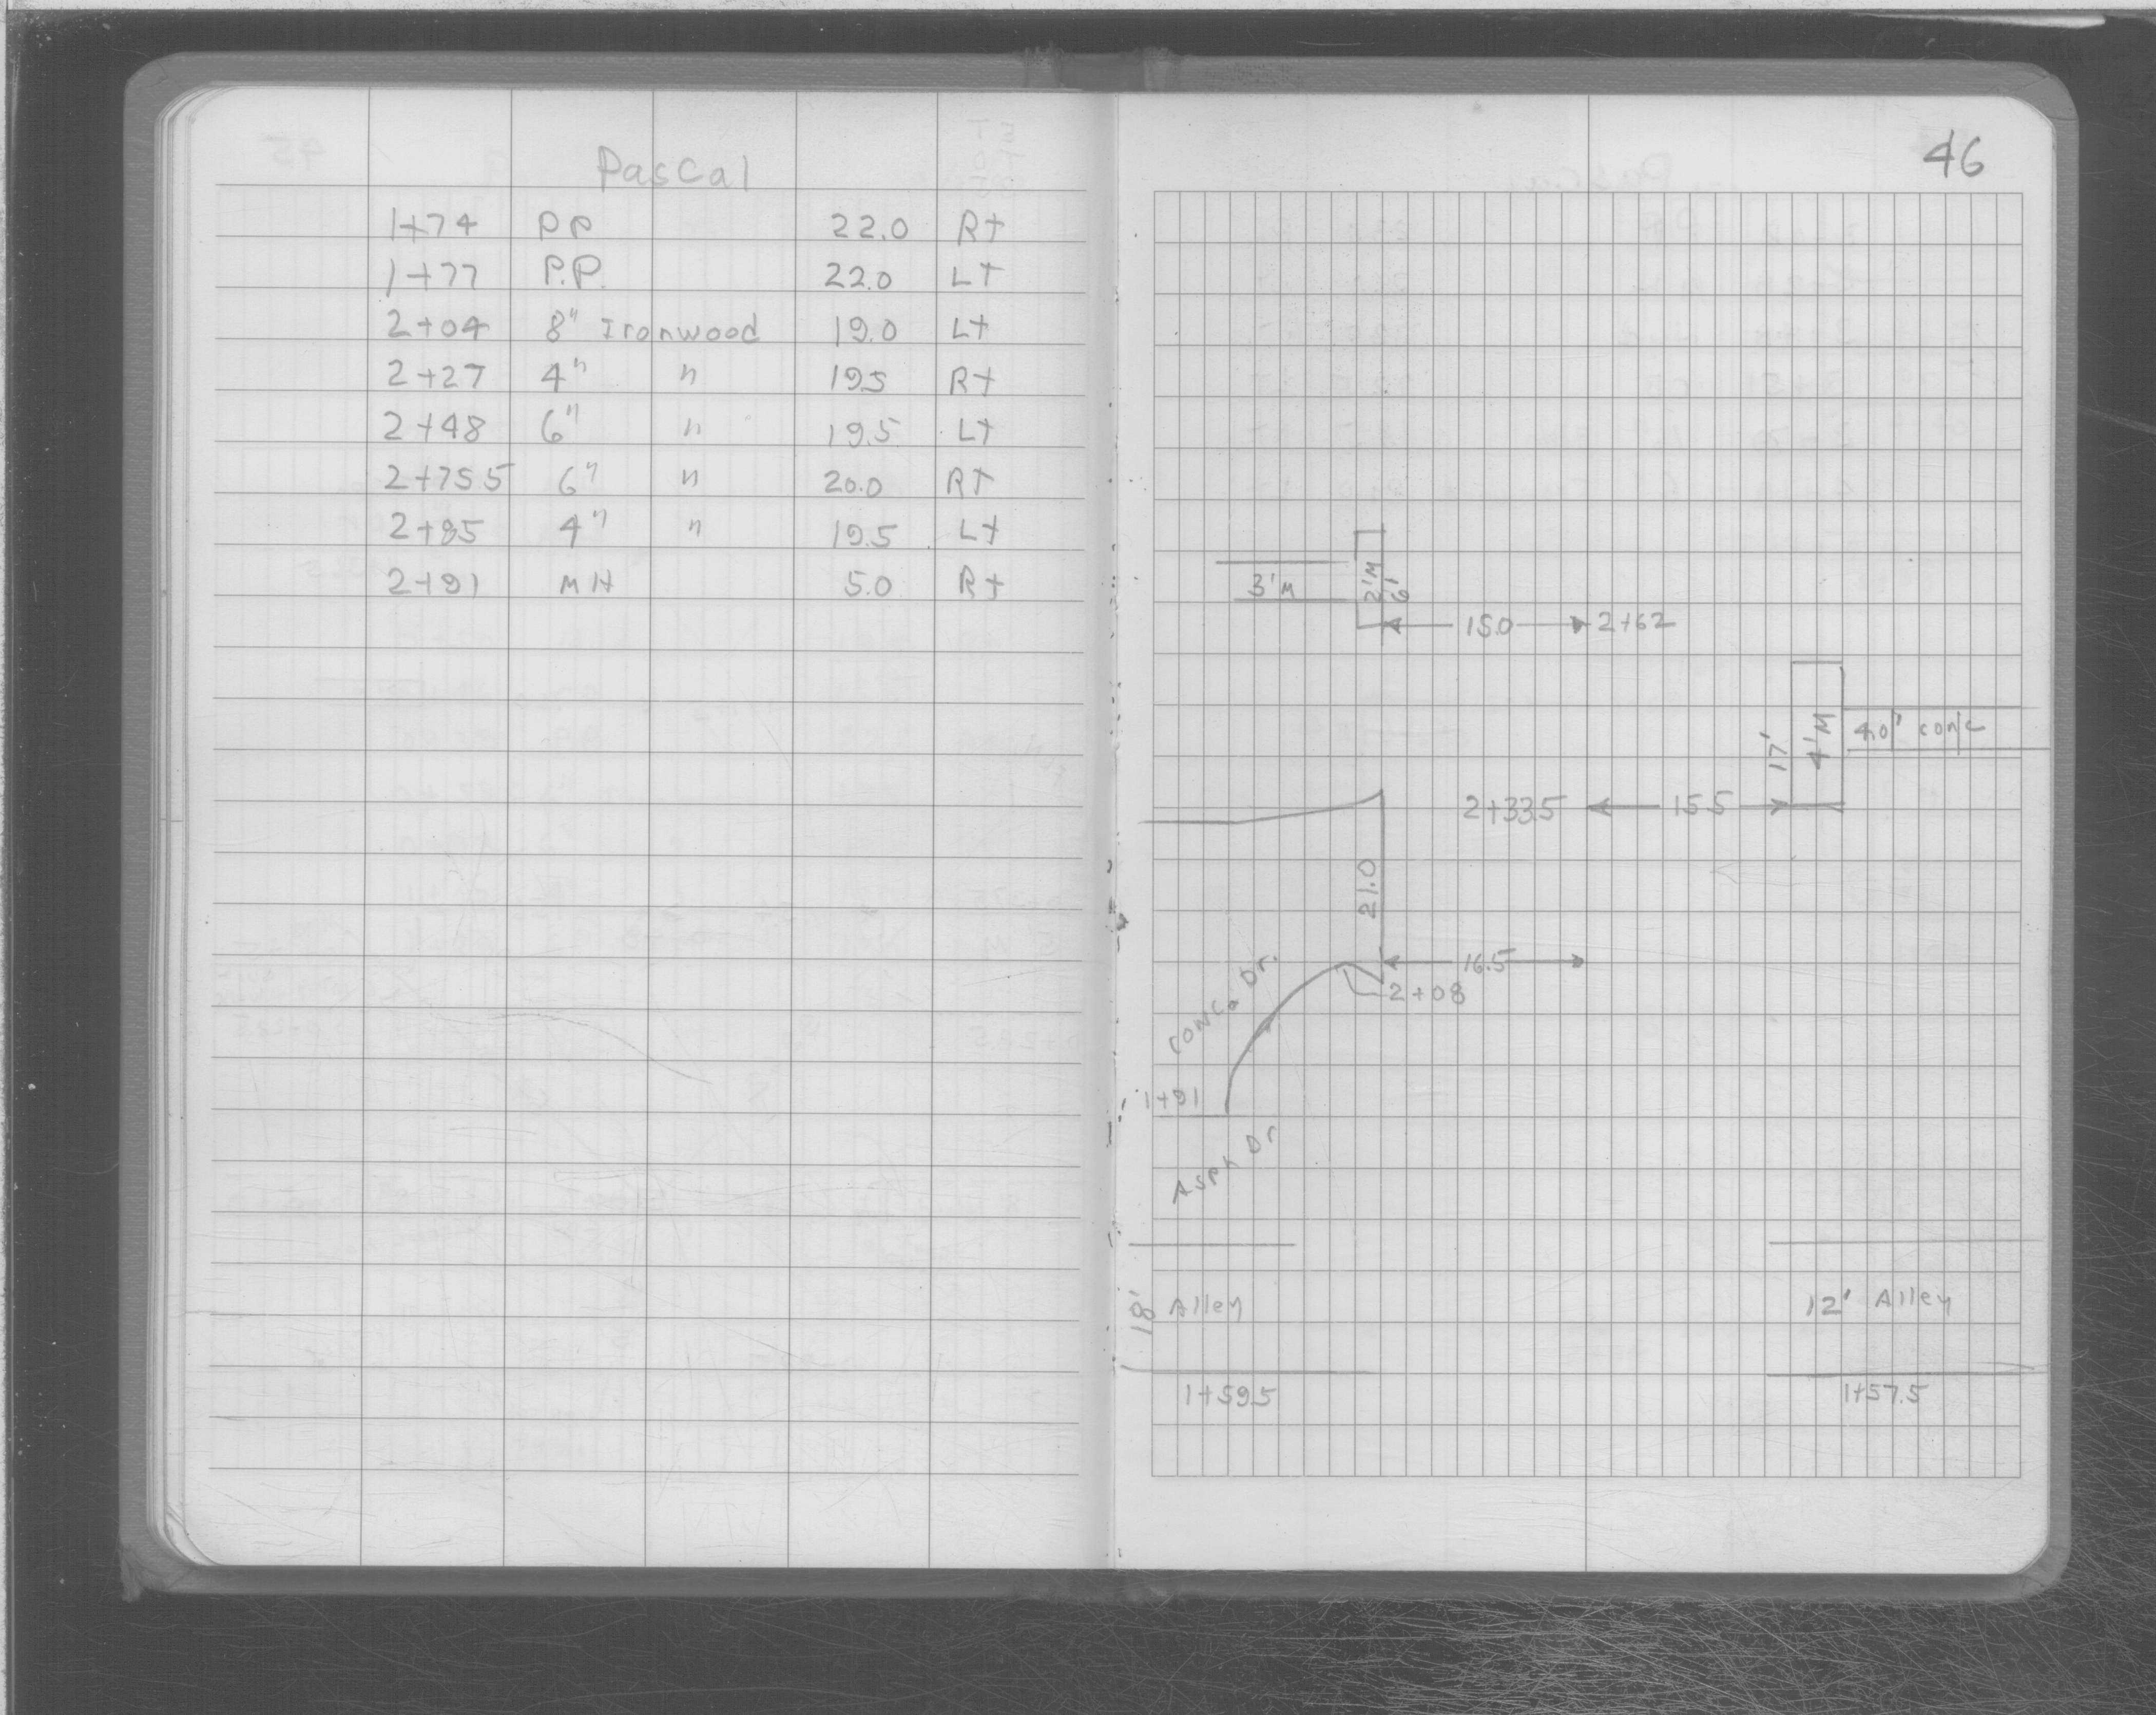 Pascal
1+74 PP 22.0 Rt
1+77 P.P. 22.0 LT
2+04 8" Ironwood 19.0 Lt
2+27 4" " 195 Rt
2+48 6" " 19.5 Lt
2+755 6" " 20.0 RT
2+85 4" " 19.5 Lt
2+91 MH 5.0 Rt
46
3'M 2'M 6'
15.0 2+62
17' 4'M 4.0' conc
2+33.5 15.5
21.0
16.5
2+08
conc. Dr.
1+91
Asph Dr
18' Alley
12' Alley
1+59.5
1+57.5